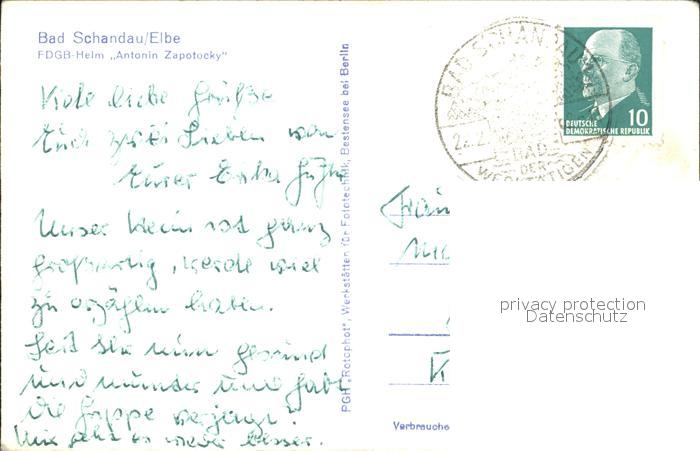 Bad Schandau/Elbe
FDGB-Heim „Antonin Zapotocky"
Viele liebe Grüße
Euch zwei Lieben von
Eurer Erika
Unser Heim ist ganz
großartig, werde viel
zu erzählen haben.
Seid Ihr nun gesund
und munter und habt
die Grippe verjagt?
Mir geht es wieder besser.
PGH „Rotophot", Werkstätten für Fototechnik, Bestensee bei Berlin
BAD SCHANDAU
BAD
DER
WERKTÄTIGEN
10
DEUTSCHE
DEMOKRATISCHE REPUBLIK
privacy protection
Datenschutz
Verbrauche